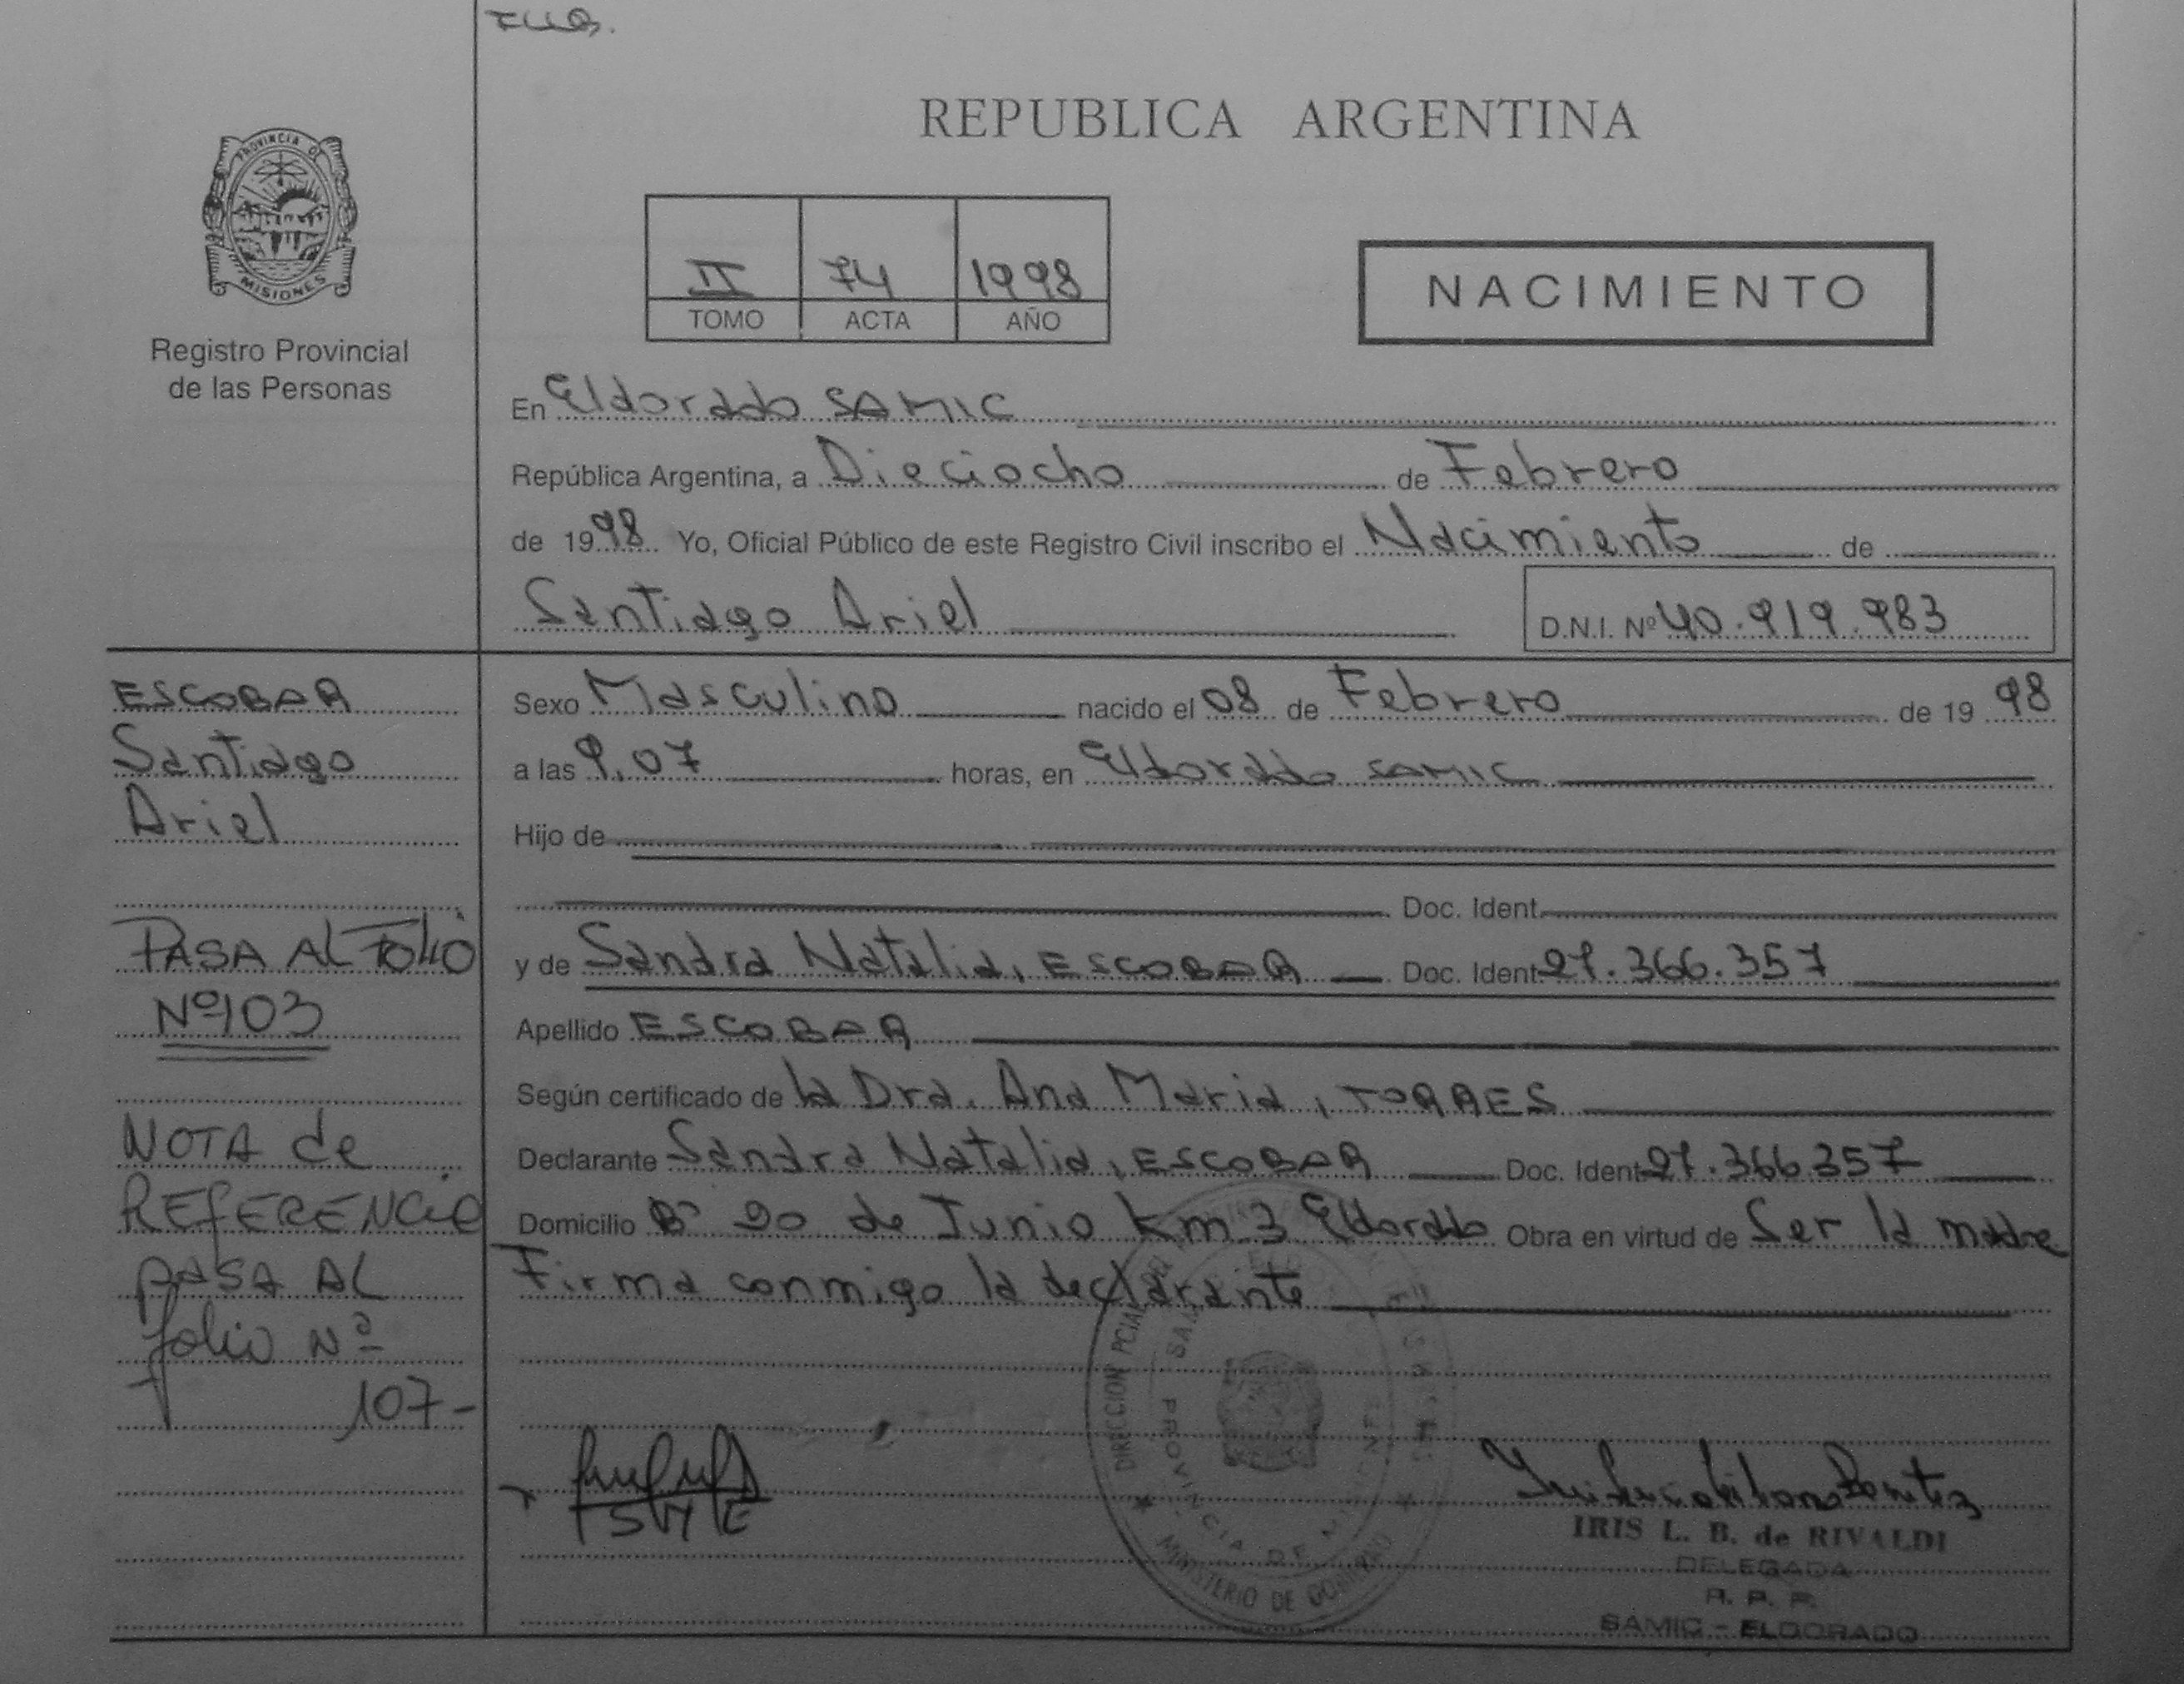 REPUBLICA ARGENTINA
PROVINCIA DE
MISIONES
Registro Provincial
de las Personas
II 74 1998
TOMO ACTA AÑO
NACIMIENTO
En Eldorado SAMIC
República Argentina, a Dieciocho de Febrero
de 1998 Yo, Oficial Público de este Registro Civil inscribo el Nacimiento de
Santiago Ariel
D.N.I. Nº 40.919.983
ESCOBAR
Santiago
Ariel
PASA AL FOLIO
Nº103
NOTA de
REFERENCIA
PASA AL
folio Nº
107-
Sexo Masculino nacido el 08 de Febrero de 1998
a las 9,07 horas, en Eldorado SAMIC
Hijo de
Doc. Ident.
y de Sandra Natalia, ESCOBAR Doc. Ident. 27.366.357
Apellido ESCOBAR
Según certificado de la Dra. Ana Maria, TORRES
Declarante Sandra Natalia, ESCOBAR Doc. Ident. 27.366.357
Domicilio Bº 20 de Junio km 3 Eldorado Obra en virtud de Ser la madre
Firma conmigo la declarante
DIRECCION PCIAL
PROVINCIA DE MISIONES
MINISTERIO DE GOBIERNO
IRIS L. B. de RIVALDI
DELEGADA
R. P. P.
SAMIC - ELDORADO